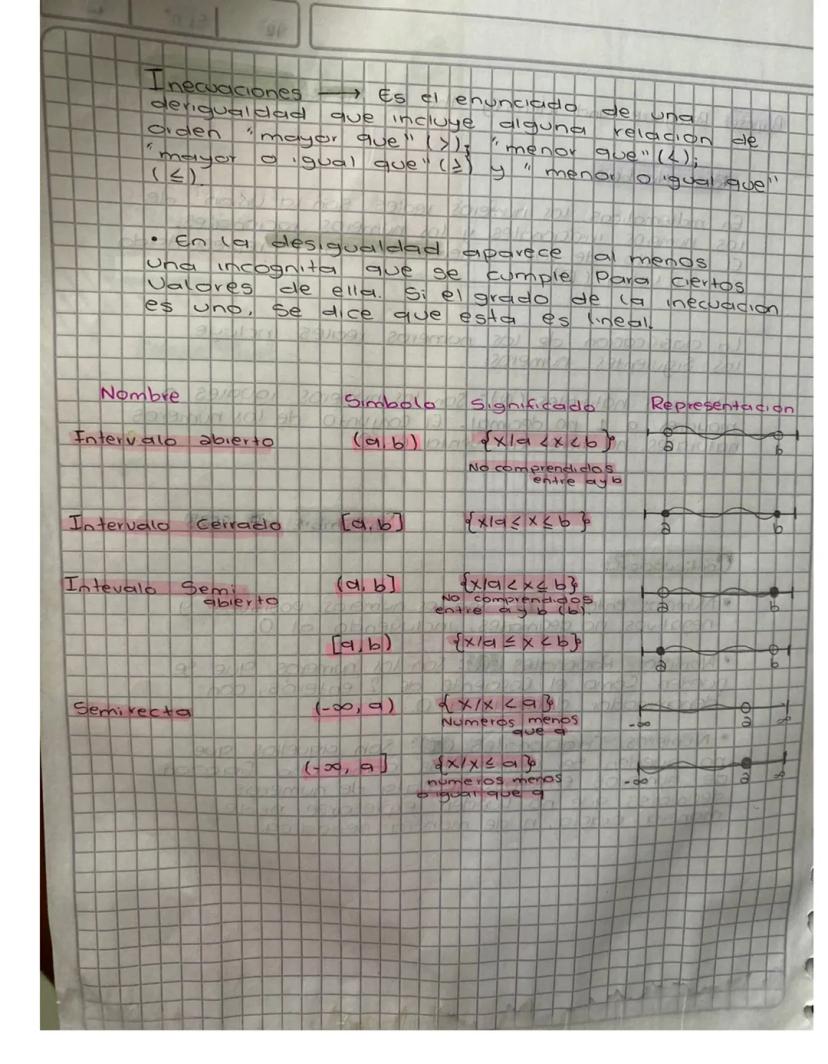 Inecuaciones → Es el enunciado de una
desigualdad que incluye alguna relacion de
orden "mayor que" (>); "menor que" (<);
"mayor o igual que" (≥) y "menor o igual que"
(≤).
• En la desigualdad aparece al menos
una incognita que se cumple para ciertos
valores de ella. Si el grado de la inecuacion
es uno, se dice que esta es lineal.
Nombre Simbolo Significado Representacion
Intervalo abierto (a,b) {x/a <x<b} a b
No comprendidos
entre a y b
Intervalo Cerrado [a,b] {x/a ≤ x ≤ b} a b
Intevalo Semi (a,b] {x/a < x ≤ b} a b
abierto No comprendidos
entre a y b (b)
[a,b) {x/a ≤ x < b} a b
Semirecta (-∞, a) {x/x < a} -∞ a ∞
Numeros menos
que a
(-∞, a] {x/x ≤ a} -∞ a ∞
numeros menos
o igual que a